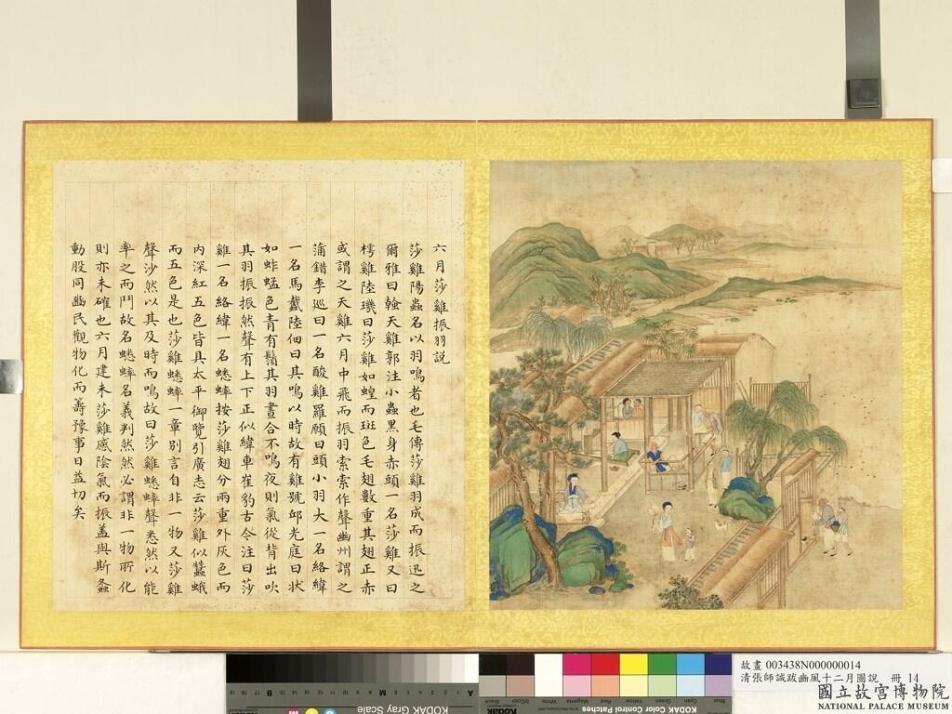 六月莎雞振羽說
莎雞陽蟲名以羽鳴者也毛傳莎雞羽成而振迅之
爾雅曰螒天雞郭注小蟲黑身赤頭一名莎雞又曰
樗雞陸璣曰莎雞如蝗而斑色毛翅數重其翅正赤
或謂之天雞六月中飛而振羽索索作聲幽州謂之
蒲錯李巡曰一名酸雞羅願曰頭小羽大一名絡緯
一名馬戴陸佃曰其鳴以時故有雞號邱光庭曰狀
如蚱蜢色青有鬚其羽晝合不鳴夜則氣從背出吹
其羽振振然聲有上下正似緯車崔豹古今注曰莎
雞一名絡緯一名蟋蟀按莎雞翅分兩重外灰色而
內深紅五色皆具太平御覽引廣志云莎雞似蠶蛾
而五色是也莎雞蟋蟀一章別言自非一物又莎雞
聲沙然以其及時而鳴故曰莎雞蟋蟀聲悉然以能
率之而鬥故名蟋蟀名義判然然必謂非一物所化
則亦未確也六月建未莎雞感陰氣而振蓋與斯螽
動股同豳民觀物化而籌豫事日益切矣
故畫 003438N000000014
清張師誠跋豳風十二月圖說 冊 14
國立故宮博物院
NATIONAL PALACE MUSEUM
KODAK Gray Scale
Kodak
KODAK Color Control Patches